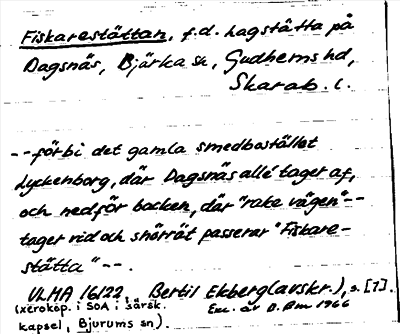 Fiskarestättan, f.d. lagstätta på
Dagsnäs, Bjärka sn, Gudhems hd,
Skarab. l.
--förbi det gamla smedbostället
Lyckenborg, där Dagsnäs allé tager af,
och nedför backen, där "raka vägen"--
tager vid och snörrät passerar "Fiskare-
stätta"--.
ULMA 16122. Bertil Ekberg (avskr.), s. [7].
(xeroxkop. i SOA i särsk. Exc. av D. Bm 1966
kapsel, Bjurums sn).